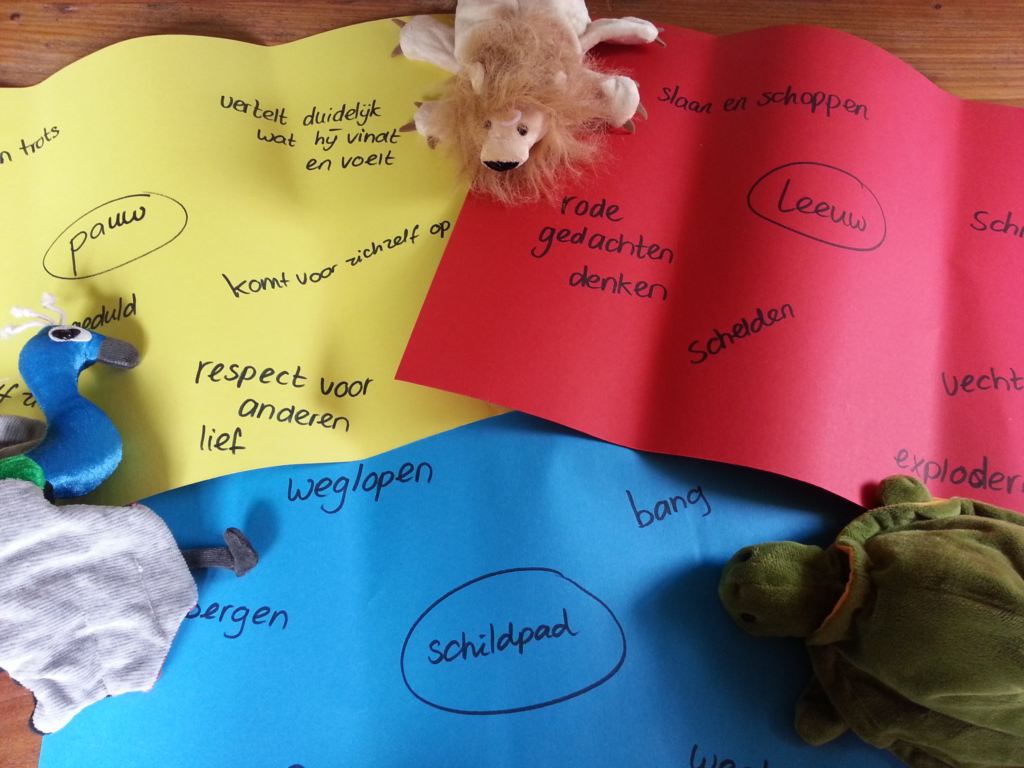 n trots
vertelt duidelijk
wat hij vindt
en voelt
pauw
komt voor zichzelf op
geduld
respect voor
anderen
lief
slaan en schoppen
Leeuw
rode
gedachten
denken
schelden
vecht
exploder
weglopen
bang
bergen
schildpad